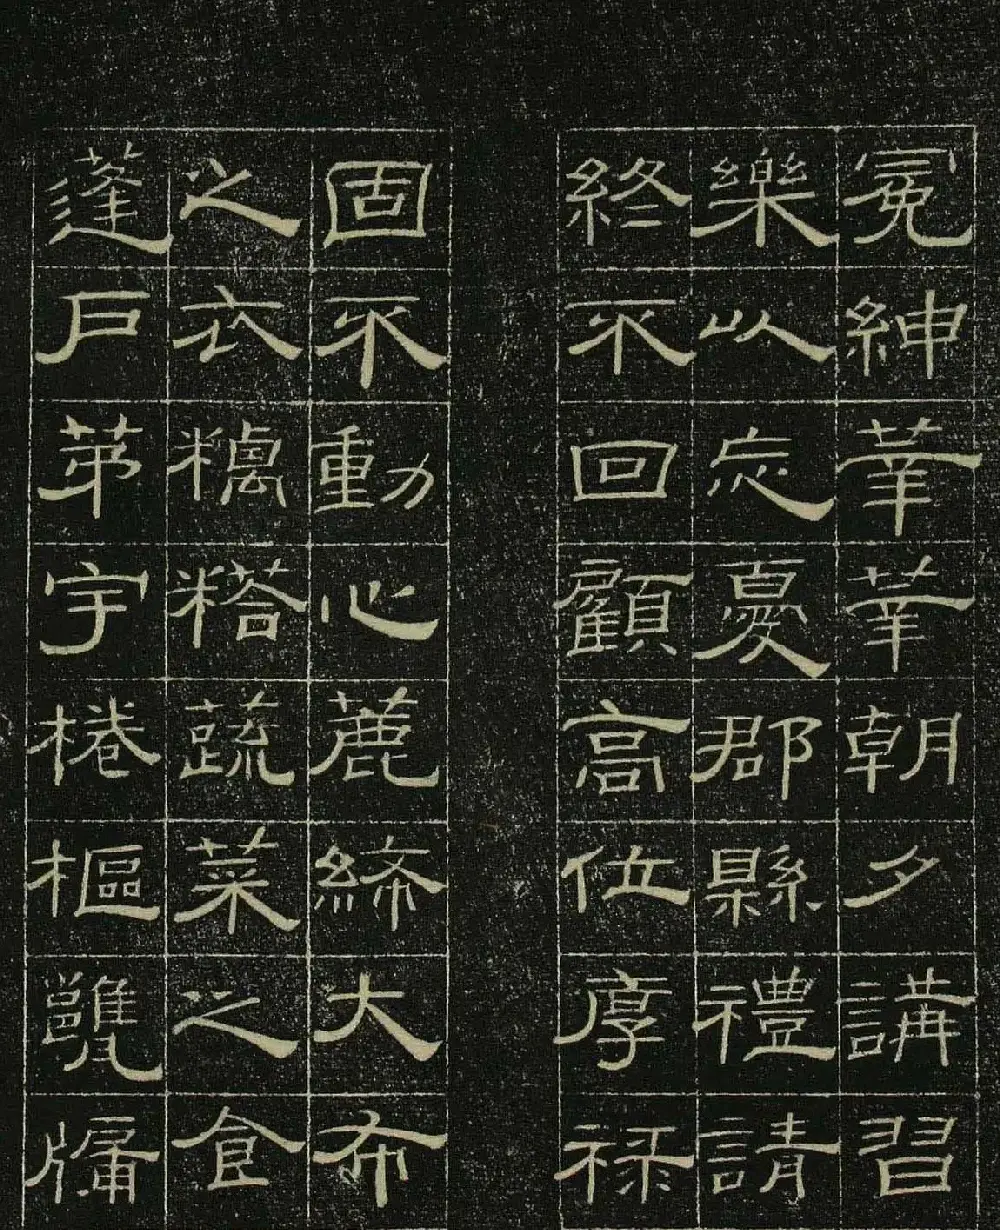 冕紳莘莘朝夕講習
樂以忘憂郡縣禮請
終不回顧高位厚祿
固不動心麄絺大布
之衣糲糌蔬菜之食
蓬戶茆宇棬樞甕牖